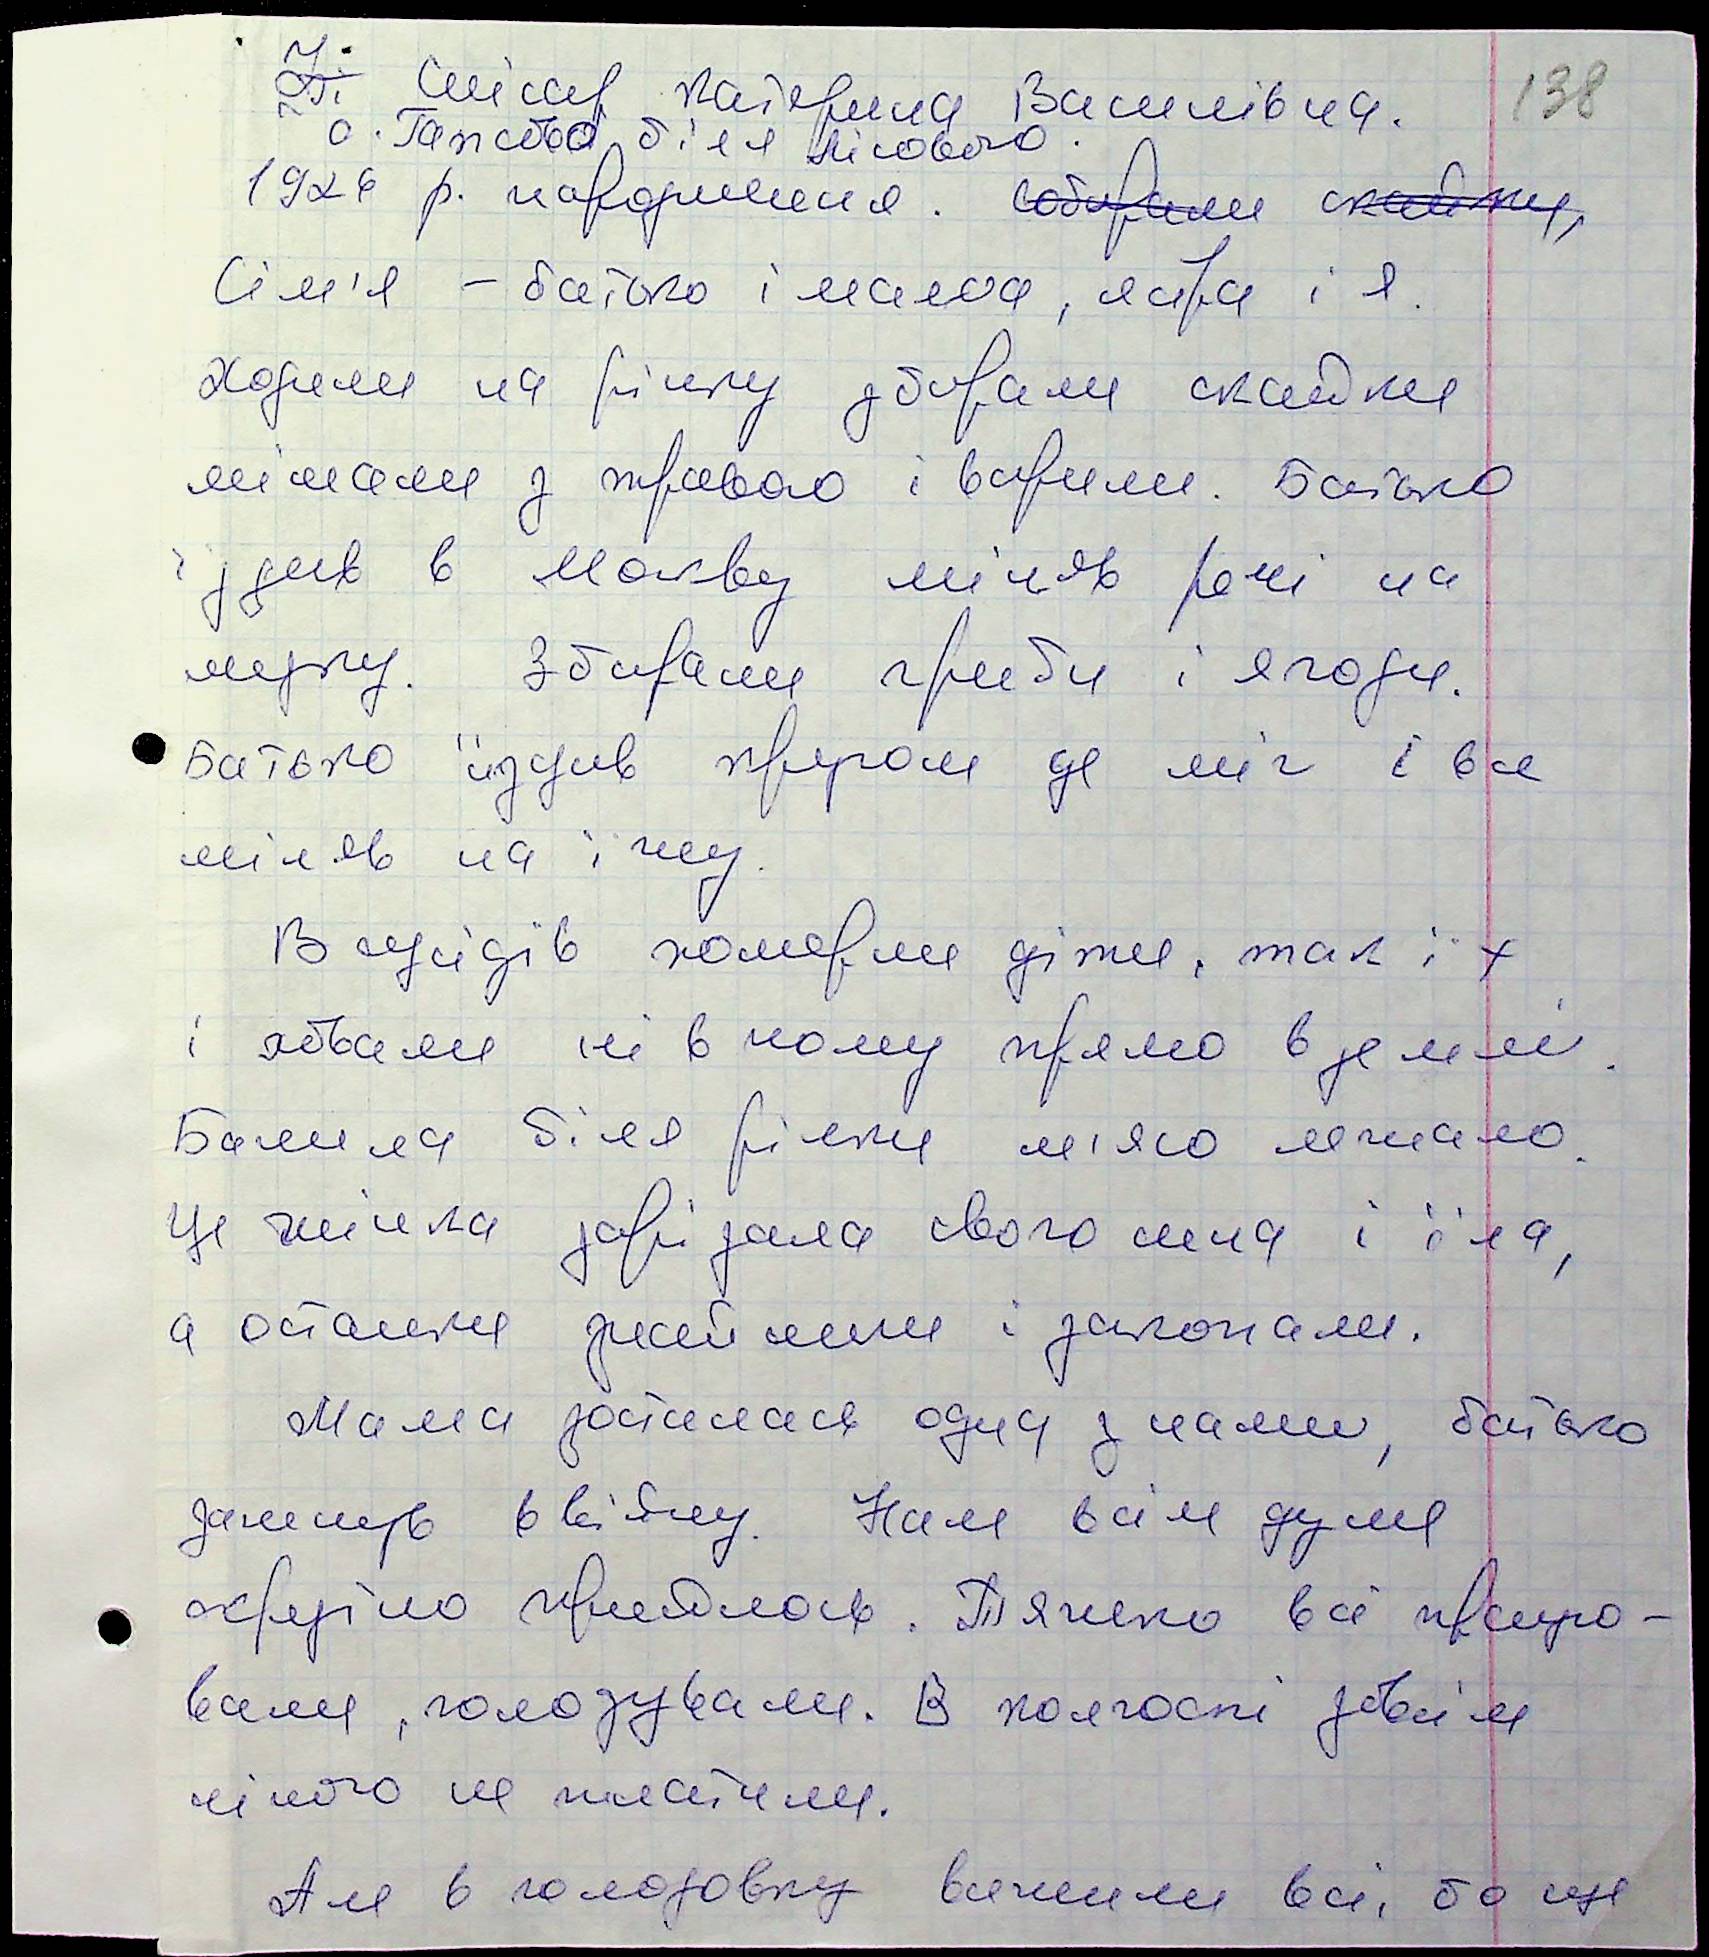 138
Катерина Василівна.
біля
1926 р. народження. собирали скойки,
Сім'я – батько і мама, сестра і я.
Ходили на річку збирали скойки
мішали з травою і варили. Батько
їздив в Москву міняв речі на
муку. Збирали гриби і ягоди.
Батько їздив кругом де міг і все
міняв на їжу.
В сусідів померли діти, так їх
і ховали прямо в землі.
Бачила біля річки м'ясо лежало.
Це жінка зарізала свого сина і їла,
а останки знайшли і закопали.
Мама зосталась одна з нами, батько
загинув в війну. Нам всім дуже
прийшлось. Тяжко всі працю-
вали, голодували. В колгоспі зовсім
нічого не платили.
Але в голодовку вижили всі, бо ще